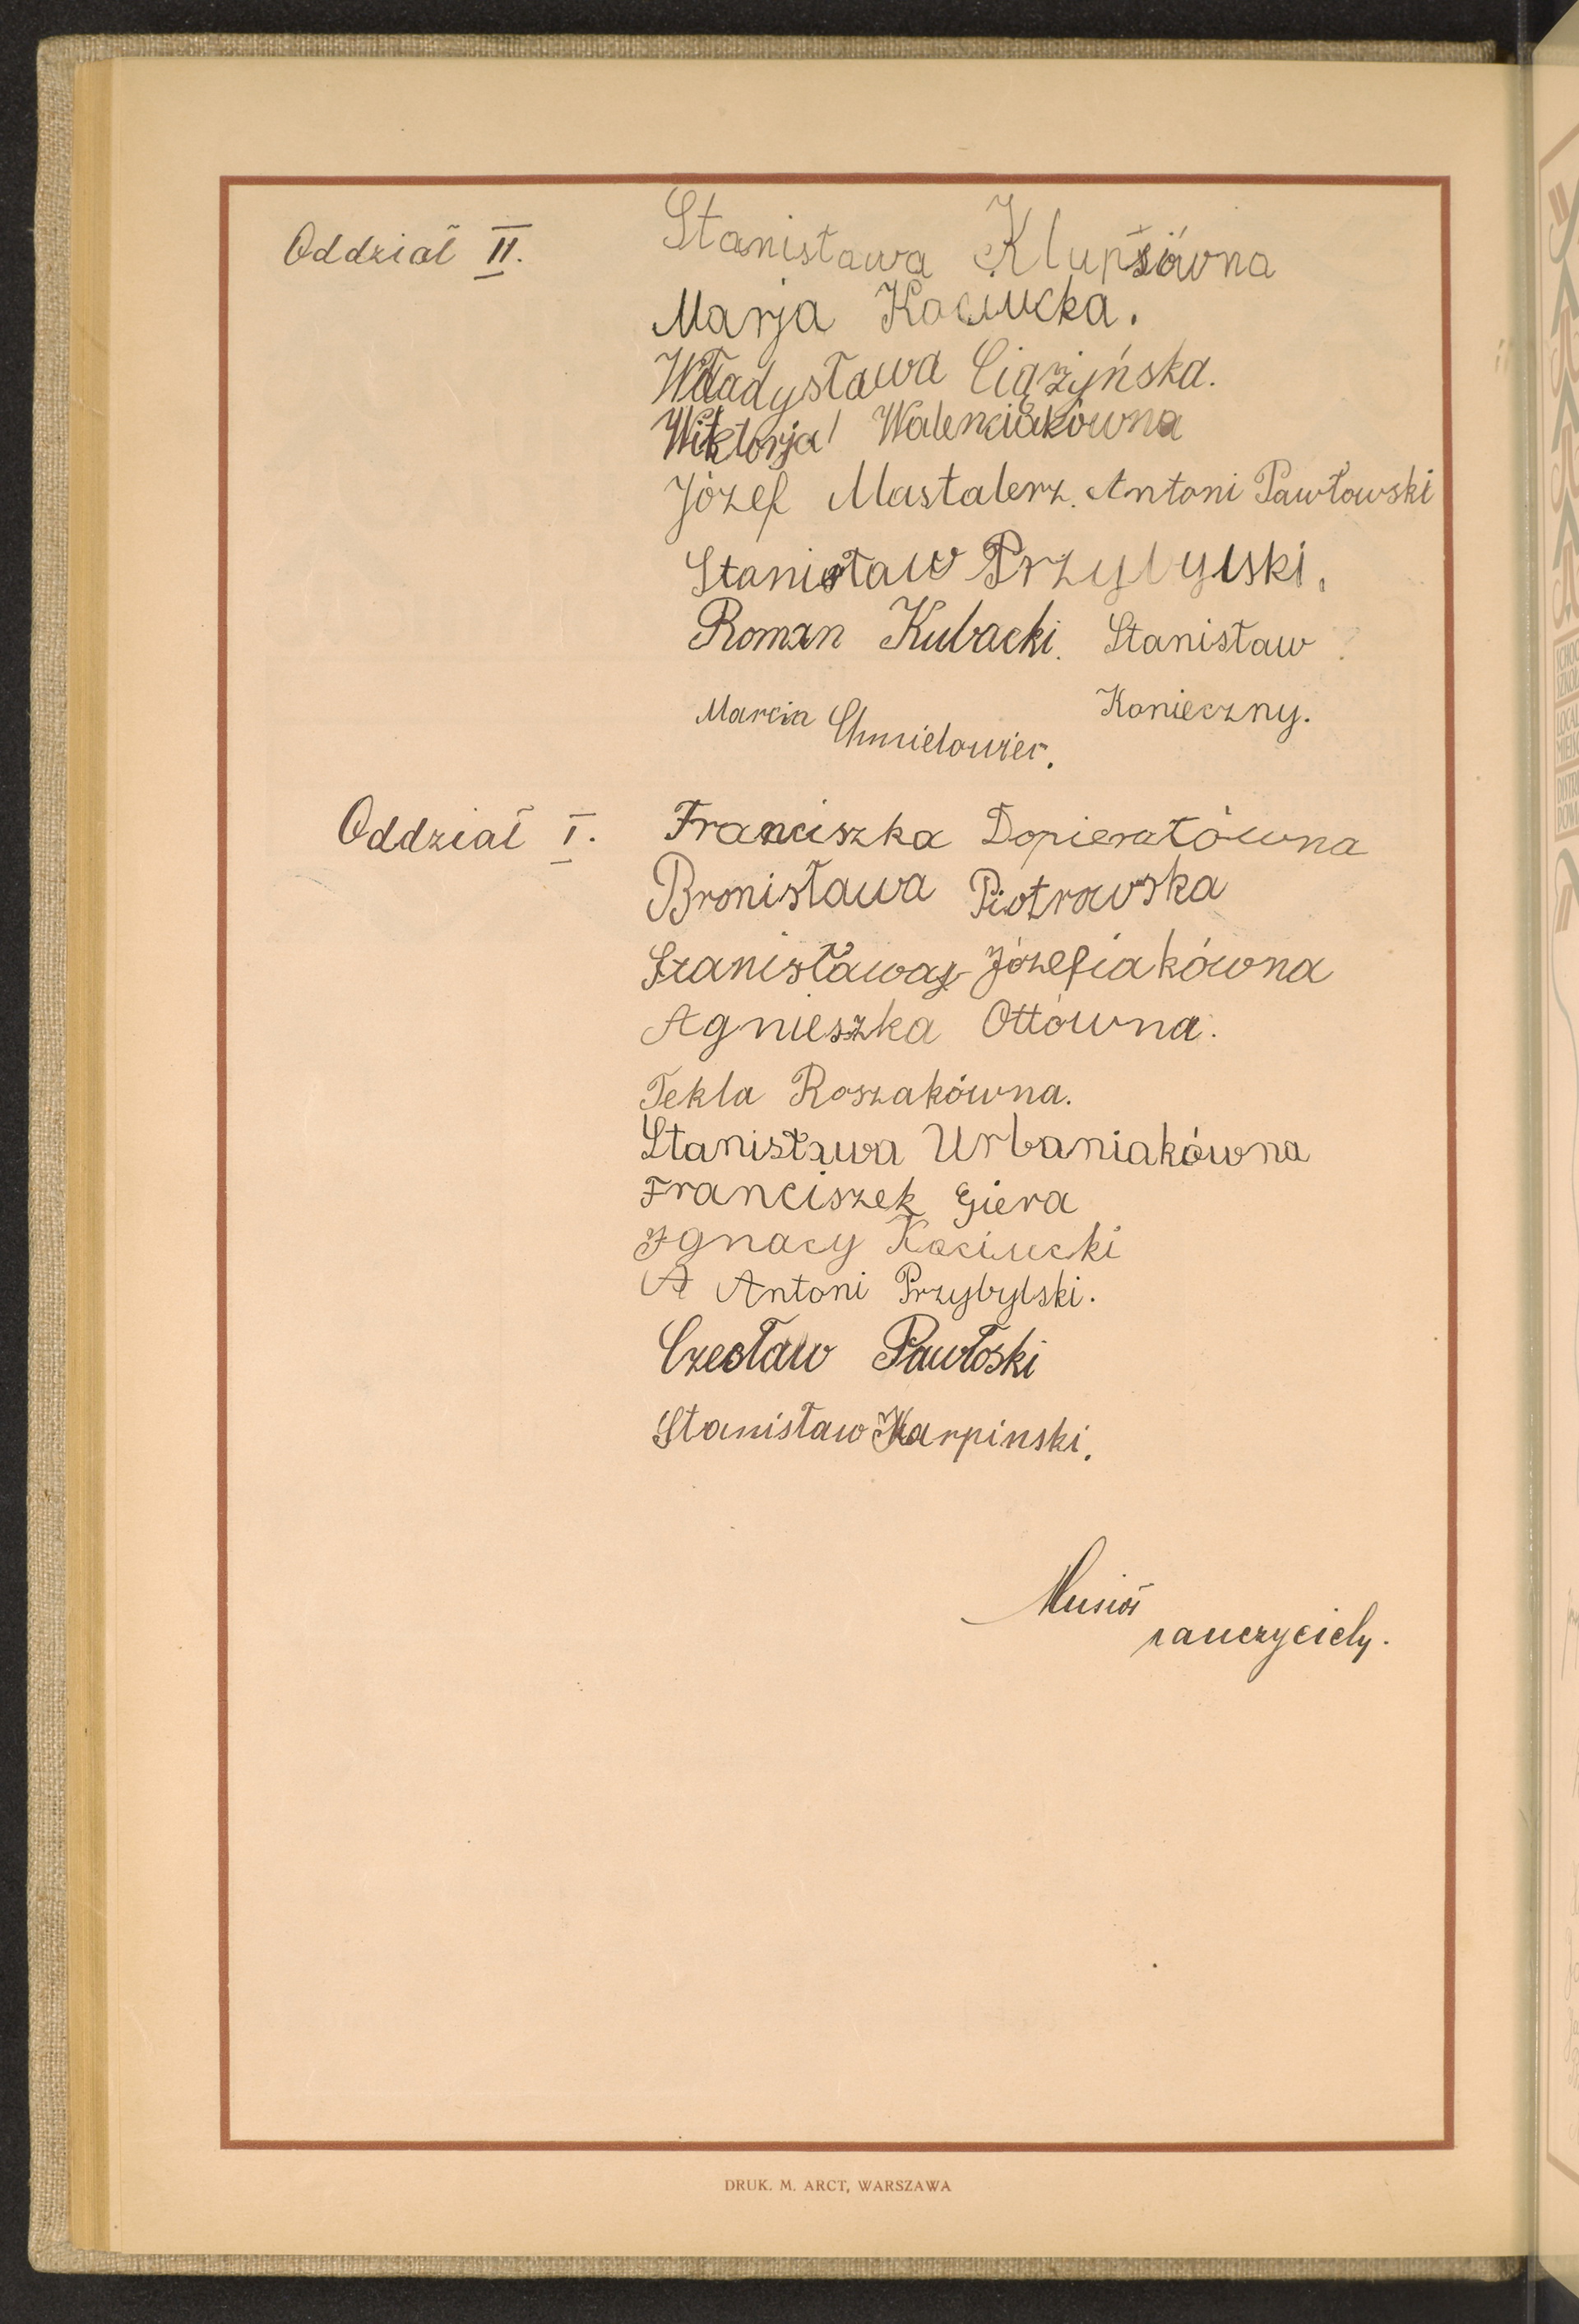 Oddział II.
Stanisława Klupsiówna
Marja Kociucka.
Władysława Ciążyńska.
Wiktorja Walenciakówna
Józef Mastalerz. Antoni Pawłowski
Stanisław Przybylski.
Roman Kubacki. Stanisław
Konieczny.
Marcin Chmielowiec.
Oddział I.
Franciszka Dopierałówna
Bronisława Piotrowska
Stanisława Józefiakówna
Agnieszka Ottówna.
Tekla Roszakówna.
Stanisława Urbaniakówna
Franciszek Giera
Ignacy Kociucki
A Antoni Przybylski.
Czesław Pawłoski
Stanisław Karpinski.
Musioł
nauczyciel.
DRUK. M. ARCT, WARSZAWA